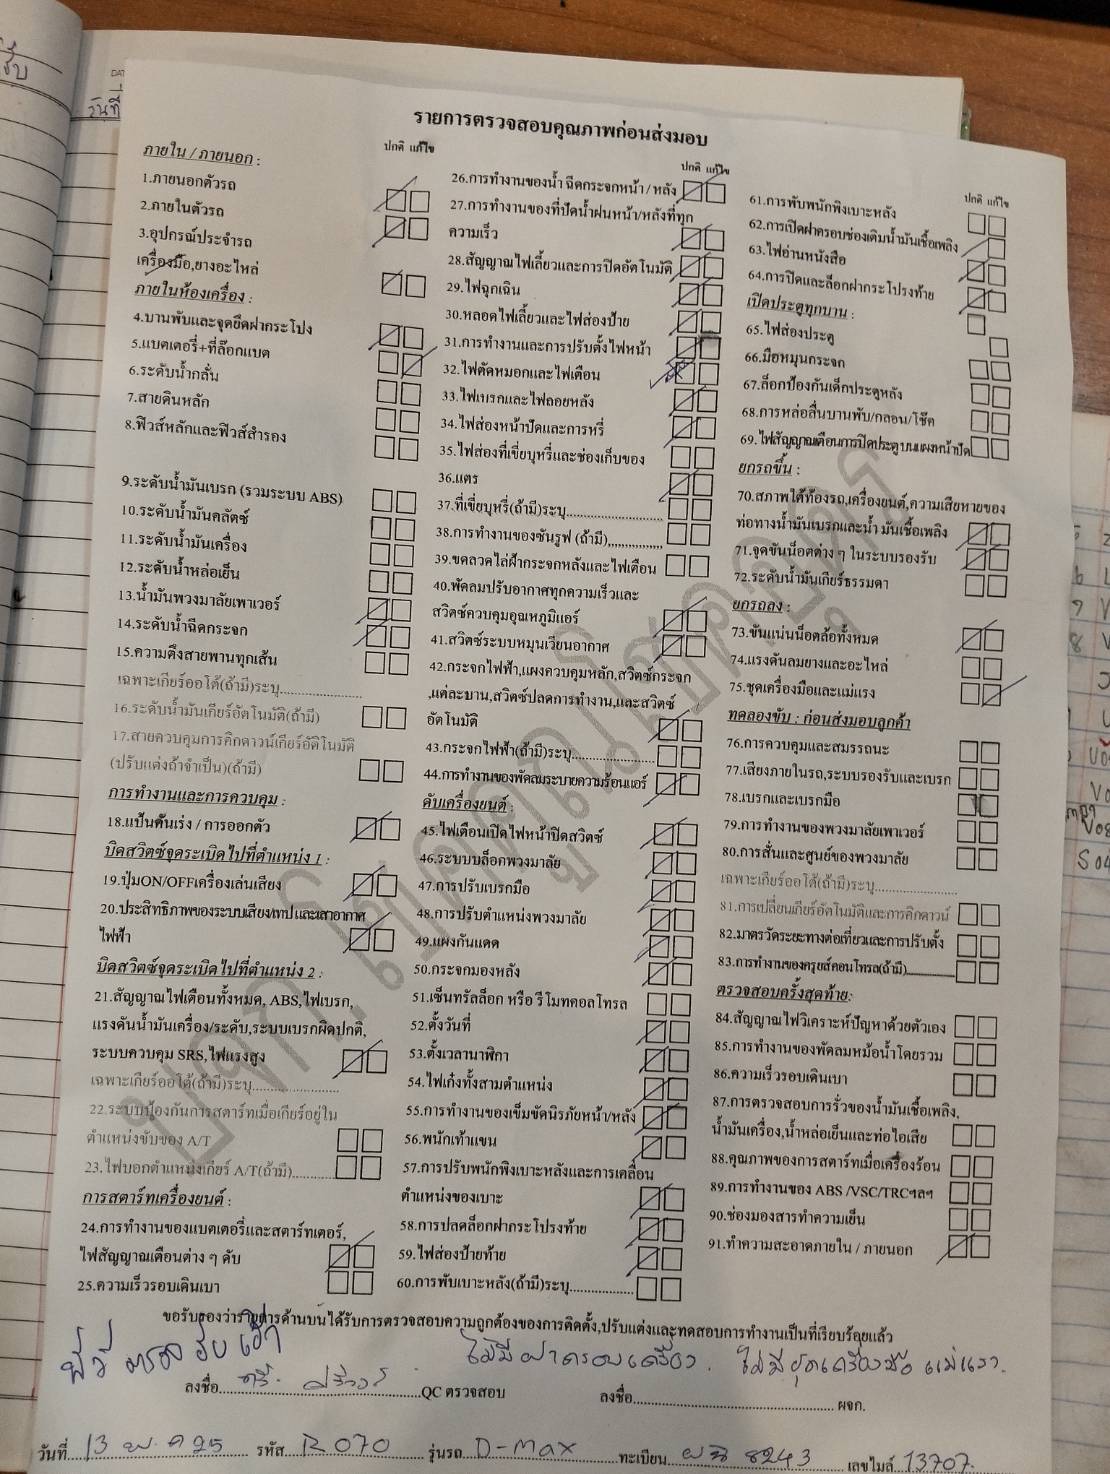 วันที่
รายการตรวจสอบคุณภาพก่อนส่งมอบ
ปกติ แก้ไข
ภายใน / ภายนอก :
1.ภายนอกตัวรถ
2.ภายในตัวรถ
3.อุปกรณ์ประจำรถ
เครื่องมือ,ยางอะไหล่
ภายในห้องเครื่อง :
4.บานพับและจุดยึดฝากระโปง
5.แบตเตอรี่+ที่ล๊อกแบต
6.ระดับน้ำกลั่น
7.สายดินหลัก
8.ฟิวส์หลักและฟิวส์สำรอง
9.ระดับน้ำมันเบรก (รวมระบบ ABS)
10.ระดับน้ำมันคลัตซ์
11.ระดับน้ำมันเครื่อง
12.ระดับน้ำหล่อเย็น
13.น้ำมันพวงมาลัยเพาเวอร์
14.ระดับน้ำฉีดกระจก
15.ความตึงสายพานทุกเส้น
เฉพาะเกียร์ออโต้(ถ้ามี)ระบุ....................
16.ระดับน้ำมันเกียร์อัตโนมัติ(ถ้ามี)
17.สายควบคุมการคิกดาวน์เกียร์อัติโนมัติ
(ปรับแต่งถ้าจำเป็น)(ถ้ามี)
การทำงานและการควบคุม :
18.แป้นคันเร่ง / การออกตัว
บิดสวิตซ์จุดระเบิดไปที่ตำแหน่ง 1 :
19.ปุ่มON/OFFเครื่องเล่นเสียง
20.ประสิทธิภาพของระบบเสียง/เทป และเสาอากาศ
ไฟฟ้า
บิดสวิตซ์จุดระเบิดไปที่ตำแหน่ง 2 :
21.สัญญาณไฟเตือนทั้งหมด, ABS,ไฟเบรก,
แรงดันน้ำมันเครื่อง/ระดับ,ระบบเบรกผิดปกติ,
ระบบควบคุม SRS,ไฟแรงสูง
เฉพาะเกียร์ออโต้(ถ้ามี)ระบุ....................
22.ระบบป้องกันการสตาร์ทเมื่อเกียร์อยู่ใน
ตำแหน่งขับของ A/T
23.ไฟบอกตำแหน่งเกียร์ A/T(ถ้ามี)..........
การสตาร์ทเครื่องยนต์ :
24.การทำงานของแบตเตอรี่และสตาร์ทเตอร์,
ไฟสัญญาณเตือนต่าง ๆ ดับ
25.ความเร็วรอบเดินเบา
ปกติ แก้ไข
26.การทำงานของน้ำ ฉีดกระจกหน้า / หลัง
27.การทำงานของที่ปัดน้ำฝนหน้า/หลังที่ทุก
ความเร็ว
28.สัญญาณไฟเลี้ยวและการปิดอัตโนมัติ
29.ไฟฉุกเฉิน
30.หลอดไฟเลี้ยวและไฟส่องป้าย
31.การทำงานและการปรับตั้งไฟหน้า
32.ไฟตัดหมอกและไฟเตือน
33.ไฟเบรกและไฟถอยหลัง
34.ไฟส่องหน้าปัดและการหรี่
35.ไฟส่องที่เขี่ยบุหรี่และช่องเก็บของ
36.แตร
37.ที่เขี่ยบุหรี่(ถ้ามี)ระบุ........................
38.การทำงานของซันรูฟ (ถ้ามี)...............
39.ขดลวดไล่ฝ้ากระจกหลังและไฟเตือน
40.พัดลมปรับอากาศทุกความเร็วและ
สวิตซ์ควบคุมอุณหภูมิแอร์
41.สวิตซ์ระบบหมุนเวียนอากาศ
42.กระจกไฟฟ้า,แผงควบคุมหลัก,สวิตซ์กระจก
,แต่ละบาน,สวิตซ์ปลดการทำงาน,และสวิตซ์
อัตโนมัติ
43.กระจกไฟฟ้า(ถ้ามี)ระบุ....................
44.การทำงานของพัดลมระบายความร้อนแอร์
ดับเครื่องยนต์ :
45.ไฟเตือนเปิดไฟหน้าปิดสวิตซ์
46.ระบบบล็อกพวงมาลัย
47.การปรับเบรกมือ
48.การปรับตำแหน่งพวงมาลัย
49.แผงกันแดด
50.กระจกมองหลัง
51.เซ็นทรัลล็อก หรือ รีโมทคอลโทรล
52.ตั้งวันที่
53.ตั้งเวลานาฬิกา
54.ไฟเก๋งทั้งสามตำแหน่ง
55.การทำงานของเข็มขัดนิรภัยหน้า/หลัง
56.พนักเท้าแขน
57.การปรับพนักพิงเบาะหลังและการเคลื่อน
ตำแหน่งของเบาะ
58.การปลดล็อกฝากระโปรงท้าย
59.ไฟส่องป้ายท้าย
60.การพับเบาะหลัง(ถ้ามี)ระบุ................
ปกติ แก้ไข
61.การพับพนักพิงเบาะหลัง
62.การเปิดฝาครอบช่องเติมน้ำมันเชื้อเพลิง
63.ไฟอ่านหนังสือ
64.การปิดและล็อกฝากระโปรงท้าย
เปิดประตูทุกบาน :
65.ไฟส่องประตู
66.มือหมุนกระจก
67.ล็อกป้องกันเด็กประตูหลัง
68.การหล่อลื่นบานพับ/กลอน/โช๊ค
69.ไฟสัญญาณเตือนการปิดประตูบนแผงหน้าปัด
ยกรถขึ้น :
70.สภาพใต้ท้องรถ,เครื่องยนต์,ความเสียหายของ
ท่อทางน้ำมันเบรกและน้ำ มันเชื้อเพลิง
71.จุดขันน็อตต่าง ๆ ในระบบรองรับ
72.ระดับน้ำมันเกียร์ธรรมดา
ยกรถลง :
73.ขันแน่นน็อตล้อทั้งหมด
74.แรงดันลมยางและอะไหล่
75.ชุดเครื่องมือและแม่แรง
ทดลองขับ : ก่อนส่งมอบลูกค้า
76.การควบคุมและสมรรถนะ
77.เสียงภายในรถ,ระบบรองรับและเบรก
78.เบรกและเบรกมือ
79.การทำงานของพวงมาลัยเพาเวอร์
80.การสั่นและศูนย์ของพวงมาลัย
เฉพาะเกียร์ออโต้(ถ้ามี)ระบุ....................
81.การเปลี่ยนเกียร์อัตโนมัติและการคิกดาวน์
82.มาตรวัดระยะทางต่อเที่ยวและการปรับตั้ง
83.การทำงานของครูยส์คอนโทรล(ถ้ามี)............
ตรวจสอบครั้งสุดท้าย:
84.สัญญาณไฟวิเคราะห์ปัญหาด้วยตัวเอง
85.การทำงานของพัดลมหม้อน้ำโดยรวม
86.ความเร็วรอบเดินเบา
87.การตรวจสอบการรั่วของน้ำมันเชื้อเพลิง,
น้ำมันเครื่อง,น้ำหล่อเย็นและท่อไอเสีย
88.คุณภาพของการสตาร์ทเมื่อเครื่องร้อน
89.การทำงานของ ABS /VSC/TRCฯลฯ
90.ช่องมองสารทำความเย็น
91.ทำความสะอาดภายใน / ภายนอก
ขอรับรองว่ารายการด้านบนได้รับการตรวจสอบความถูกต้องของการติดตั้ง,ปรับแต่งและทดสอบการทำงานเป็นที่เรียบร้อยแล้ว
ไม่มีฝาครอบเครื่อง. ไม่มีชุดเครื่องมือ แม่แรง.
ลงชื่อ....................QC ตรวจสอบ ลงชื่อ.................... ผจก.
วันที่ 13 พ.ค 25 รหัส R 070 รุ่นรถ D-max ทะเบียน 8243 เลขไมล์ 13707.